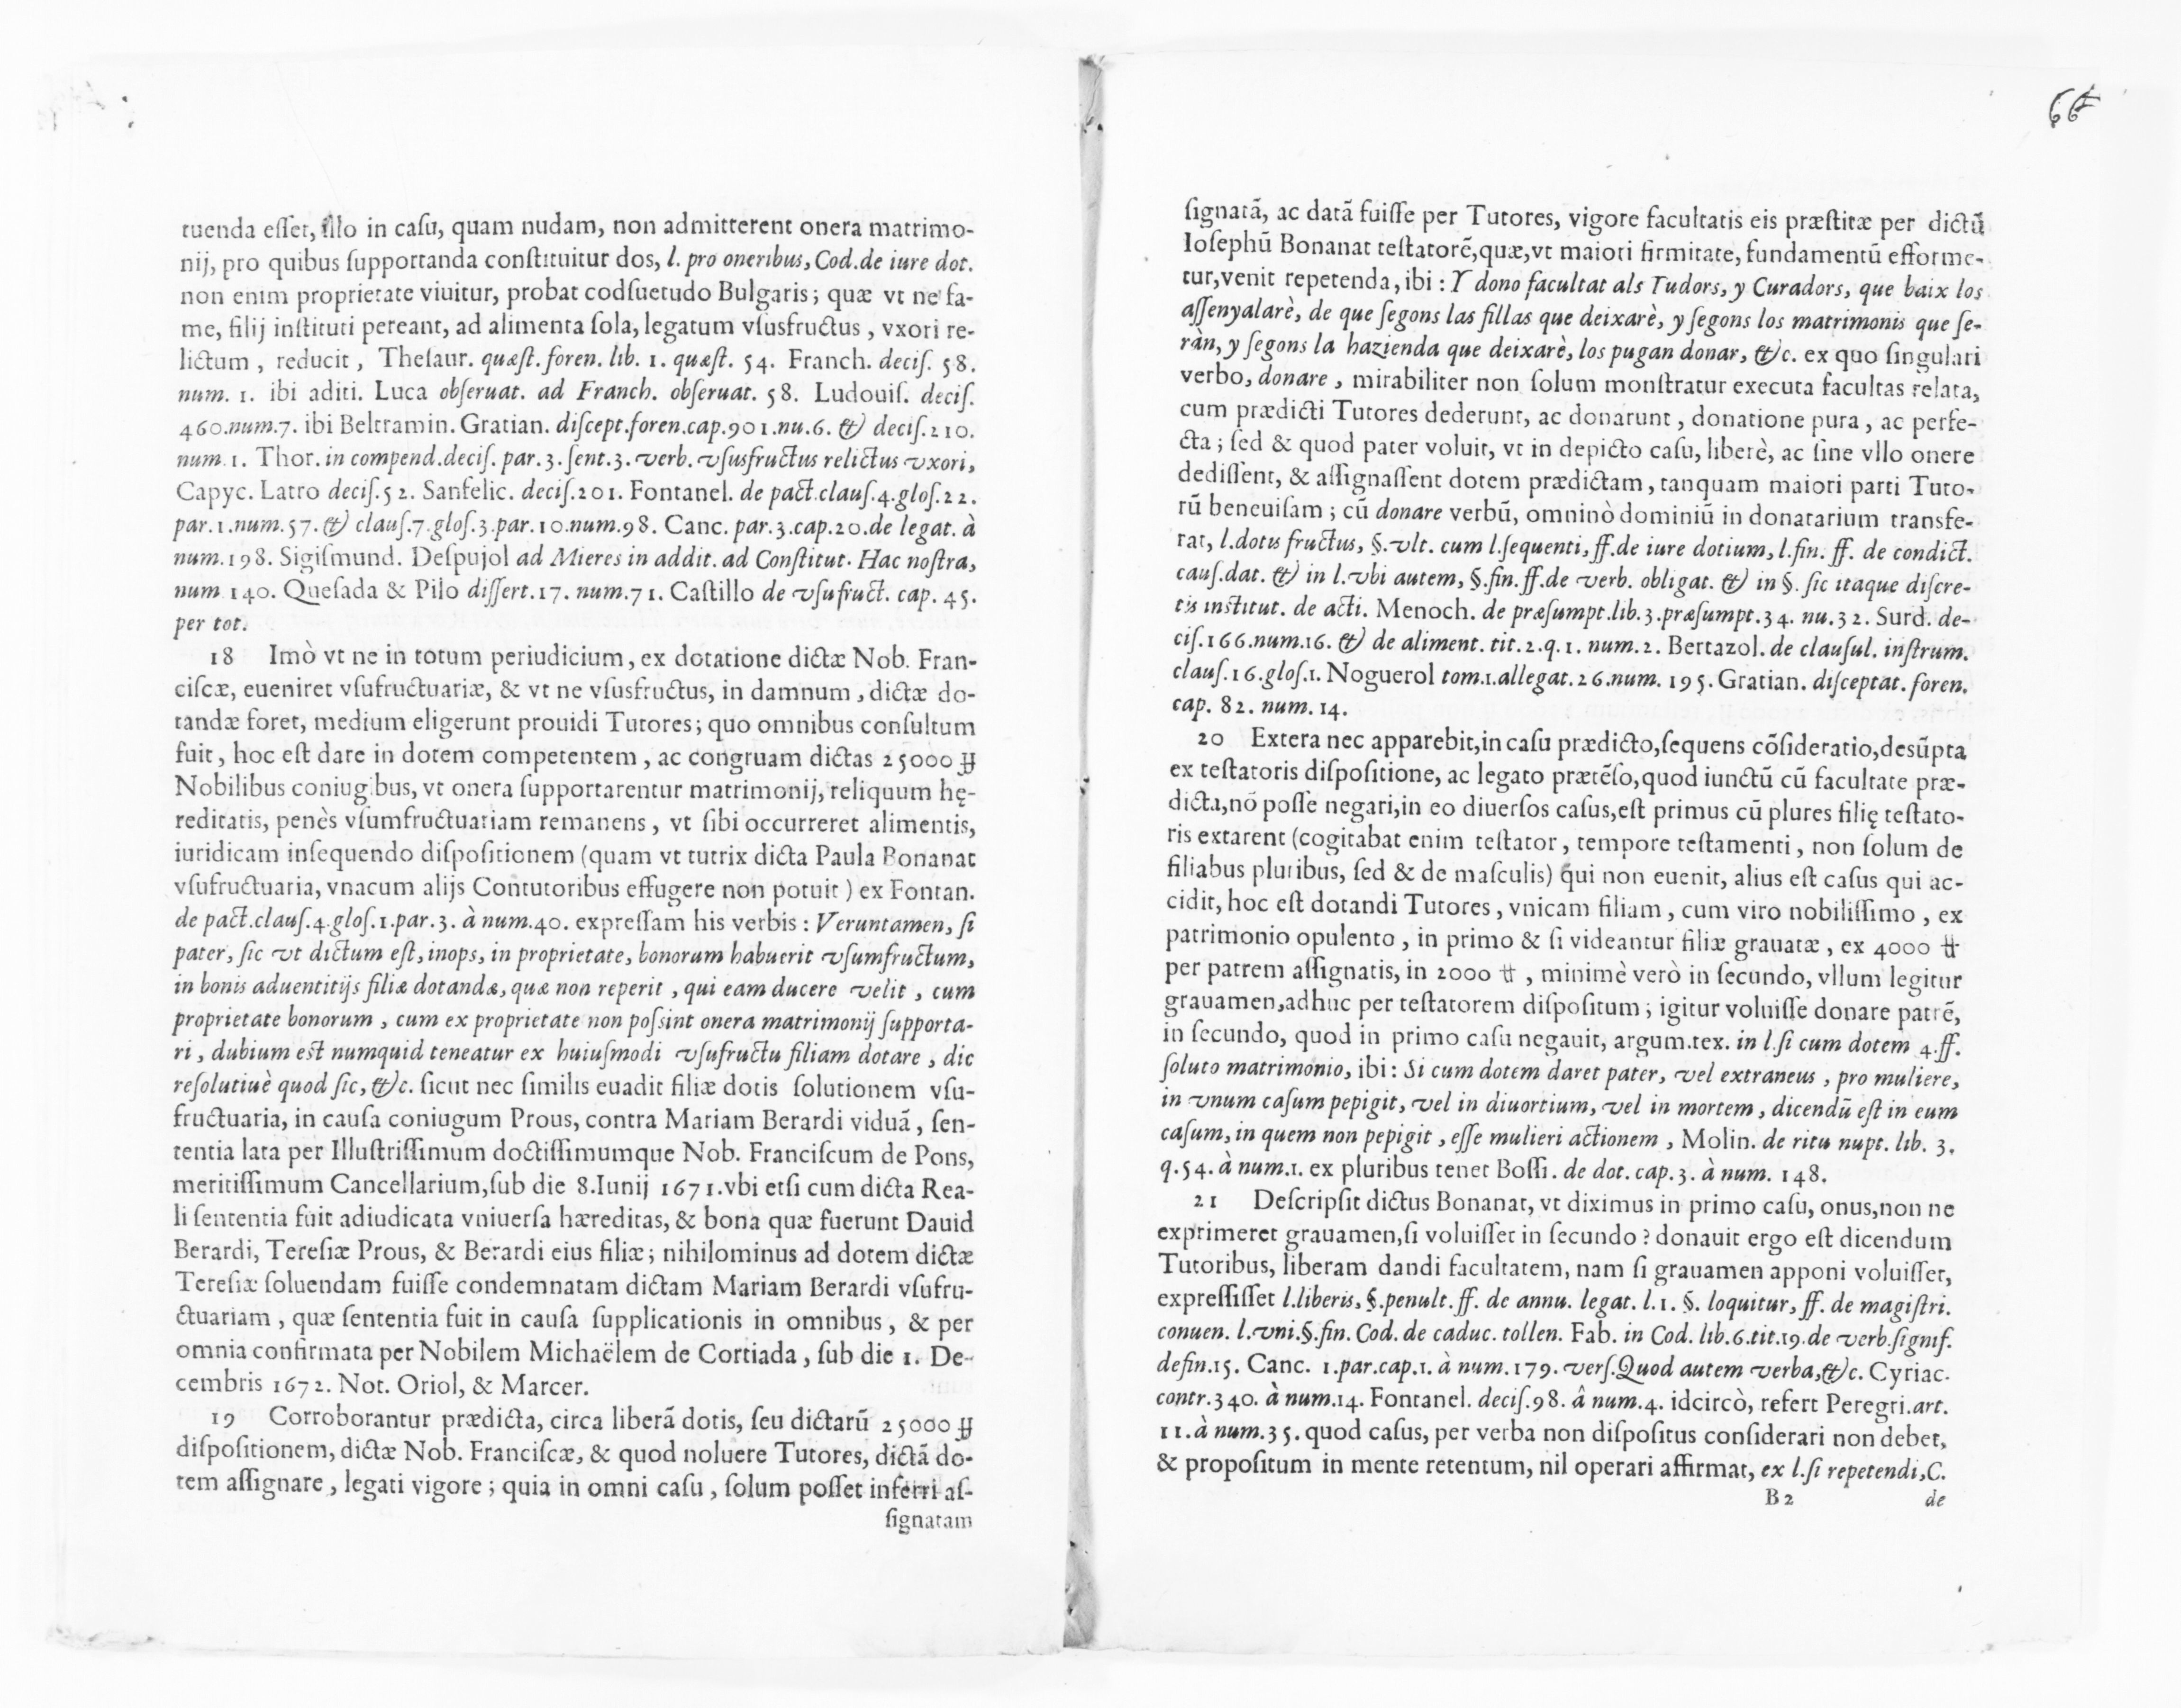 tuenda esset, illo in casu, quam nudam, non admitterent onera matrimo-
nij, pro quibus supportanda constituitur dos, l. pro oneribus, Cod.de iure dot.
non enim proprietate viuitur, probat codsuetudo Bulgaris; quæ vt ne fa-
me, filij instituti pereant, ad alimenta sola, legatum vsusfructus, vxori re-
lictum, reducit, Thesaur. quæst. foren. lib. 1. quæst. 54. Franch. decis. 58.
num. 1. ibi aditi. Luca obseruat. ad Franch. obseruat. 58. Ludouis. decis.
460.num.7. ibi Beltramin. Gratian. discept.foren.cap.901.nu.6. & decis.210.
num.1. Thor. in compend.decis. par. 3. sent.3. verb. vsusfructus relictus vxori,
Capyc. Latro decis.52. Sanfelic. decis.201. Fontanel. de pact.claus.4.glos.22.
par.1.num.57. & claus.7.glos.3.par.10.num.98. Canc. par.3.cap.20.de legat. à
num.198. Sigismund. Despujol ad Mieres in addit. ad Constitut. Hac nostra,
num 140. Quesada & Pilo dissert.17. num.71. Castillo de vsufruct. cap. 45.
per tot.
18 Imò vt ne in totum periudicium, ex dotatione dictæ Nob. Fran-
ciscæ, eueniret vsufructuariæ, & vt ne vsusfructus, in damnum, dictæ do-
tandæ foret, medium eligerunt prouidi Tutores; quo omnibus consultum
fuit, hoc est dare in dotem competentem, ac congruam dictas 25000 ℔
Nobilibus coniugibus, vt onera supportarentur matrimonij, reliquum hę-
reditatis, penès vsumfructuariam remanens, vt sibi occurreret alimentis,
iuridicam insequendo dispositionem (quam vt tutrix dicta Paula Bonanat
vsufructuaria, vnacum alijs Contutoribus effugere non potuit) ex Fontan.
de pact.claus.4.glos.1.par.3. à num.40. expressam his verbis: Veruntamen, si
pater, sic vt dictum est, inops, in proprietate, bonorum habuerit vsumfructum,
in bonis aduentitijs filiæ dotandæ, quæ non reperit, qui eam ducere velit, cum
proprietate bonorum, cum ex proprietate non possint onera matrimonij supporta-
ri, dubium est numquid teneatur ex huiusmodi vsufructu filiam dotare, dic
resolutiuè quod sic, &c. sicut nec similis euadit filiæ dotis solutionem vsu-
fructuaria, in causa coniugum Prous, contra Mariam Berardi viduã, sen-
tentia lata per Illustrissimum doctissimumque Nob. Franciscum de Pons,
meritissimum Cancellarium, sub die 8.Iunij 1671.vbi etsi cum dicta Rea-
li sententia fuit adiudicata vniuersa hæreditas, & bona quæ fuerunt Dauid
Berardi, Teresiæ Prous, & Berardi eius filiæ; nihilominus ad dotem dictæ
Teresiæ soluendam fuisse condemnatam dictam Mariam Berardi vsufru-
ctuariam, quæ sententia fuit in causa supplicationis in omnibus, & per
omnia confirmata per Nobilem Michaëlem de Cortiada, sub die 1. De-
cembris 1672. Not. Oriol, & Marcer.
19 Corroborantur prædicta, circa liberã dotis, seu dictarũ 25000 ℔
dispositionem, dictæ Nob. Franciscæ, & quod noluere Tutores, dictã do-
tem assignare, legati vigore; quia in omni casu, solum posset inferri as-
signatam
66
signatã, ac datã fuisse per Tutores, vigore facultatis eis præstitæ per dictũ
Iosephũ Bonanat testatorẽ, quæ, vt maiori firmitate, fundamentũ efforme-
tur, venit repetenda, ibi: Y dono facultat als Tudors, y Curadors, que baix los
assenyalarè, de que segons las fillas que deixarè, y segons los matrimonis que se-
ràn, y segons la hazienda que deixarè, los pugan donar, &c. ex quo singulari
verbo, donare, mirabiliter non solum monstratur executa facultas relata,
cum prædicti Tutores dederunt, ac donarunt, donatione pura, ac perfe-
cta; sed & quod pater voluit, vt in depicto casu, liberè, ac sine vllo onere
dedissent, & assignassent dotem prædictam, tanquam maiori parti Tuto-
rũ beneuisam; cũ donare verbũ, omninò dominiũ in donatarium transfe-
rat, l.dotis fructus, §.vlt. cum l.sequenti, ff.de iure dotium, l.fin. ff. de condict.
caus.dat. & in l.vbi autem, §.fin.ff.de verb. obligat. & in §. sic itaque discre-
tis institut. de acti. Menoch. de præsumpt.lib.3.præsumpt.34. nu.32. Surd. de-
cis.166.num.16. & de aliment. tit.2.q.1. num.2. Bertazol. de clausul. instrum.
claus.16.glos.1. Noguerol tom.1.allegat.26.num. 195. Gratian. disceptat. foren.
cap. 82. num. 14.
20 Extera nec apparebit, in casu prædicto, sequens cõsideratio, desũpta
ex testatoris dispositione, ac legato prætẽso, quod iunctũ cũ facultate præ-
dicta, nõ posse negari, in eo diuersos casus, est primus cũ plures filię testato-
ris extarent (cogitabat enim testator, tempore testamenti, non solum de
filiabus pluribus, sed & de masculis) qui non euenit, alius est casus qui ac-
cidit, hoc est dotandi Tutores, vnicam filiam, cum viro nobilissimo, ex
patrimonio opulento, in primo & si videantur filiæ grauatæ, ex 4000 ℔
per patrem assignatis, in 2000 ℔, minimè verò in secundo, vllum legitur
grauamen, adhuc per testatorem dispositum; igitur voluisse donare patrẽ,
in secundo, quod in primo casu negauit, argum.tex. in l.si cum dotem 4.ff.
soluto matrimonio, ibi: Si cum dotem daret pater, vel extraneus, pro muliere,
in vnum casum pepigit, vel in diuortium, vel in mortem, dicendũ est in eum
casum, in quem non pepigit, esse mulieri actionem, Molin. de ritu nupt. lib. 3.
q.54. à num.1. ex pluribus tenet Bossi. de dot. cap.3. à num. 148.
21 Descripsit dictus Bonanat, vt diximus in primo casu, onus, non ne
exprimeret grauamen, si voluisset in secundo? donauit ergo est dicendum
Tutoribus, liberam dandi facultatem, nam si grauamen apponi voluisset,
expressisset l.liberis, §.penult. ff. de annu. legat. l.1. §. loquitur, ff. de magistri.
conuen. l.vni.§.fin. Cod. de caduc. tollen. Fab. in Cod. lib.6.tit.19.de verb.signif.
defin.15. Canc. 1.par.cap.1. à num.179. vers.Quod autem verba, &c. Cyriac.
contr.340. à num.14. Fontanel. decis.98. â num.4. idcircò, refert Peregri.art.
11.à num.35. quod casus, per verba non dispositus considerari non debet,
& propositum in mente retentum, nil operari affirmat, ex l.si repetendi, C.
B2 de